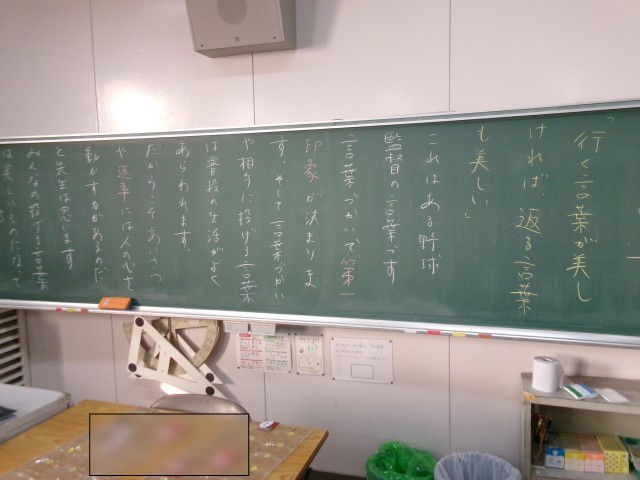 「行く言葉が美し
ければ、返る言葉
も美しい」
これはある野球
監督の言葉です
言葉づかいで第一
印象が決まりま
す。そして言葉づかい
や相手に投げる言葉
は普段の生活がよく
あらわれます。
だからこそあいさつ
や返事には人の心を
動かす力があるのだ
と先生は思います
みんなの投げる言葉
は美しい